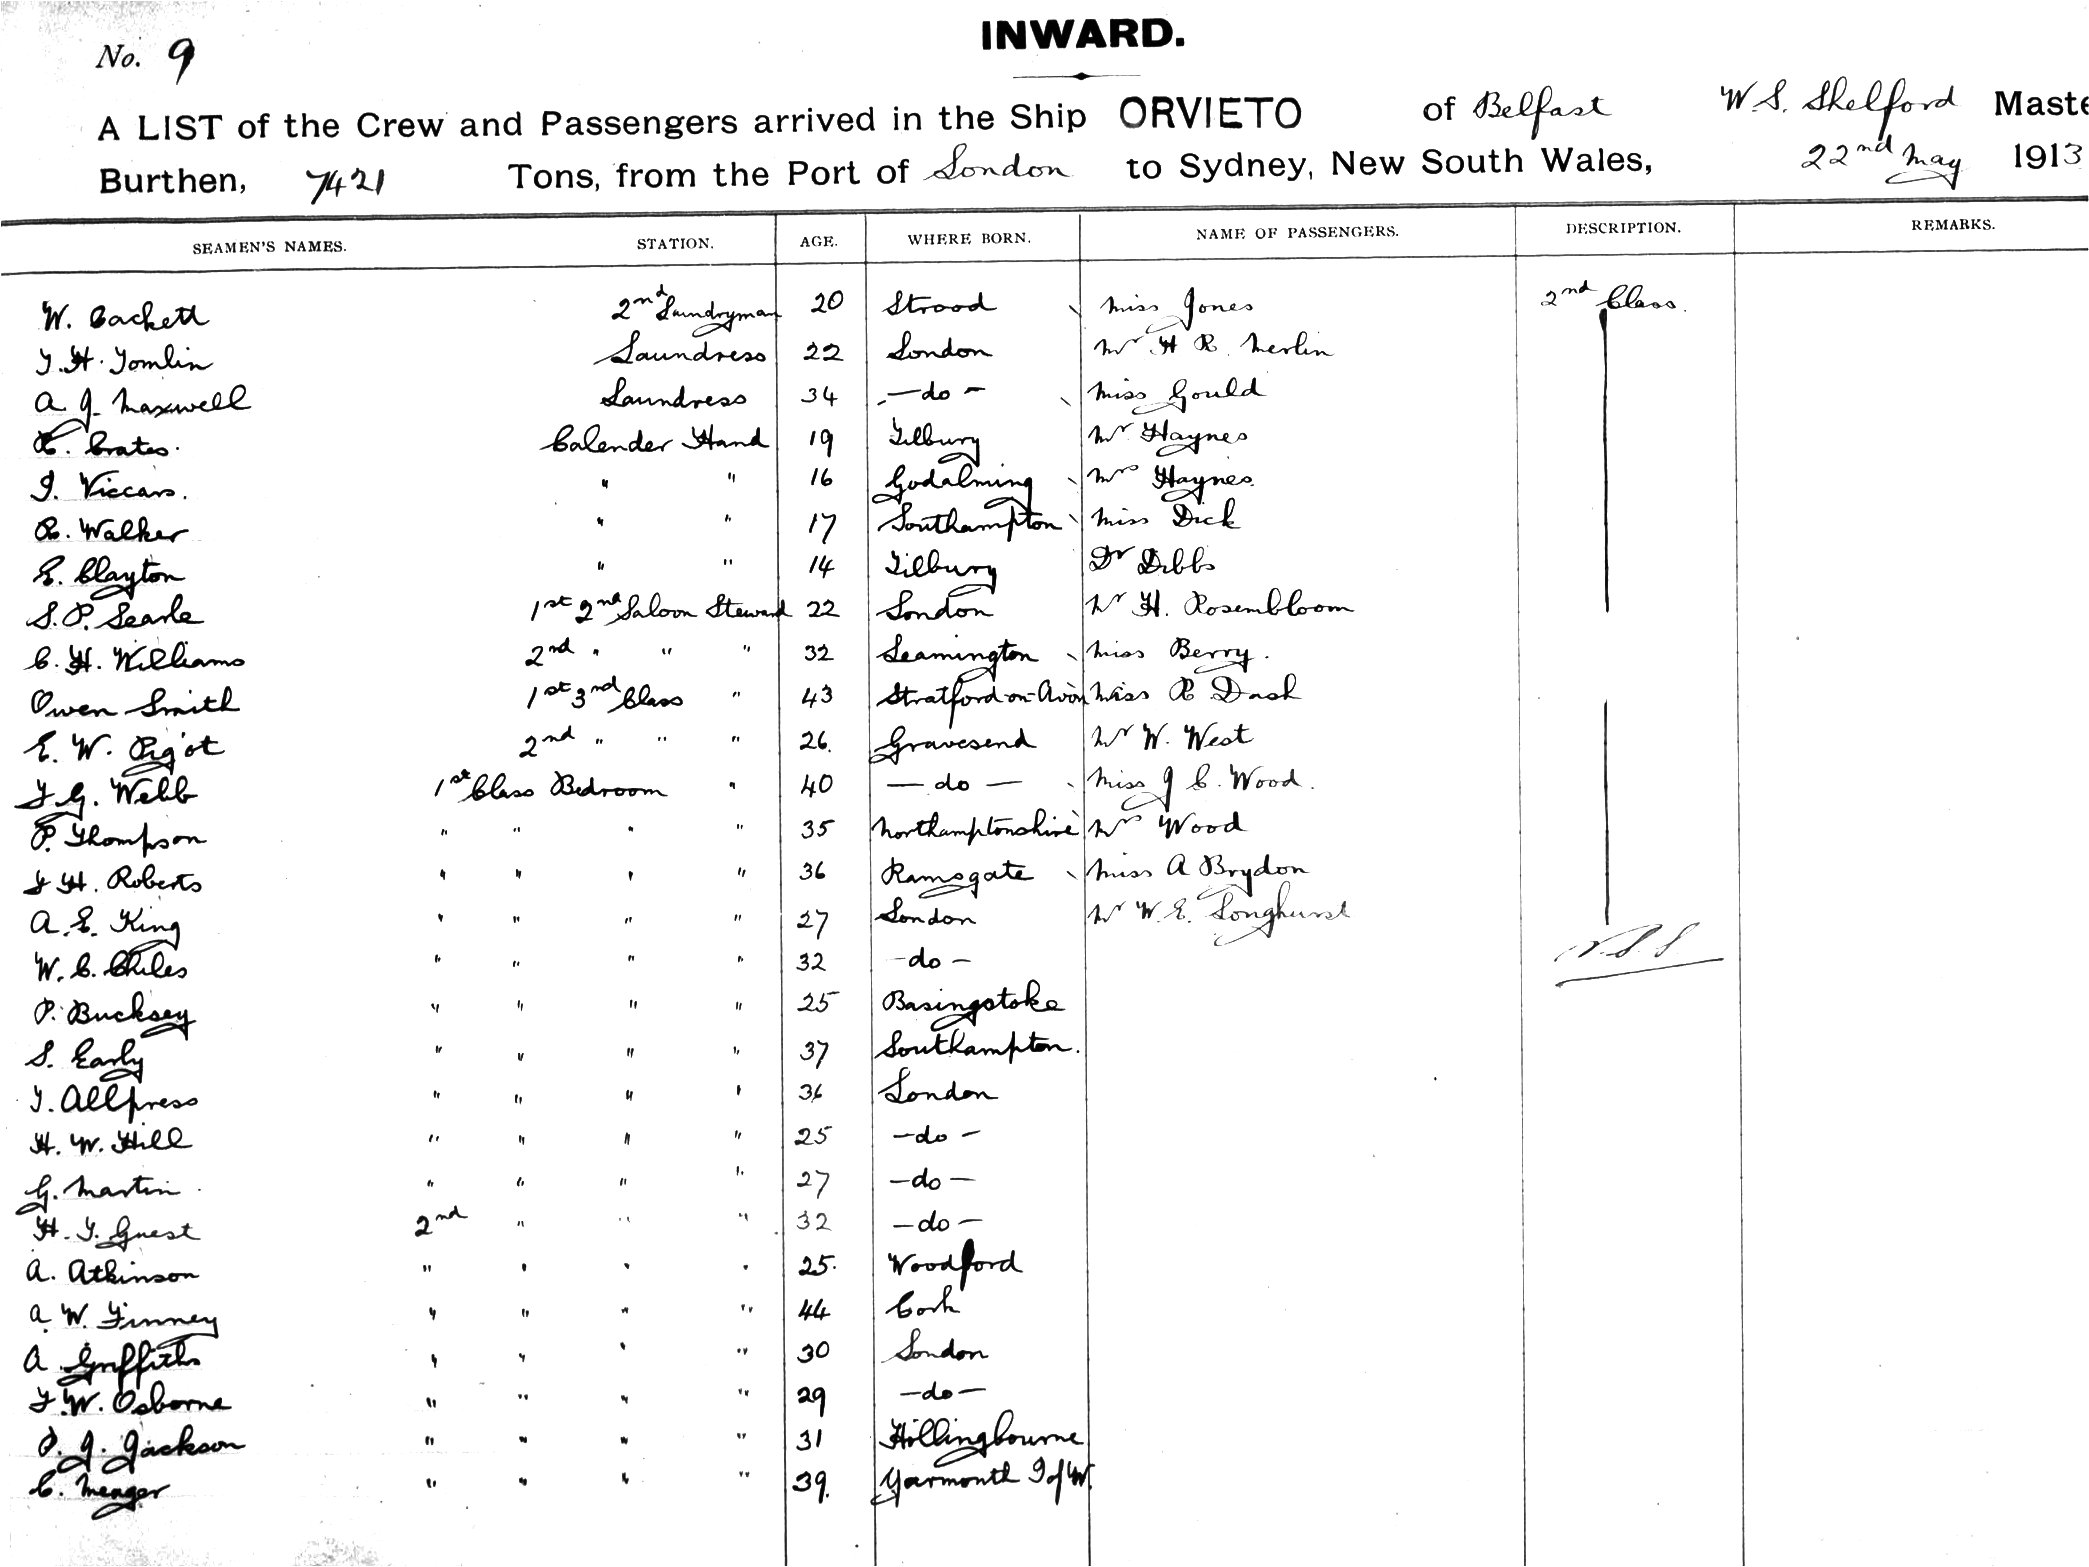 No. 9
INWARD.
A LIST of the Crew and Passengers arrived in the Ship ORVIETO of Belfast W. S. Shelford Maste
Burthen, 7421 Tons, from the Port of London to Sydney, New South Wales, 22nd May 1913
SEAMEN'S NAMES. STATION. AGE. WHERE BORN. NAME OF PASSENGERS. DESCRIPTION. REMARKS.
W. Cackett 2nd Laundryman 20 Strood Miss Jones 2nd Class.
T. H. Tomlin Laundress 22 London Mr H R. Merlin
A J. Maxwell Laundress 34 - do - Miss Gould
Crates. Calender Hand 19 Tilbury Mr Haynes
Viccars. " " 16 Godalming Mrs Haynes.
R. Walker " " 17 Southampton Miss Dick
E. Clayton " " 14 Tilbury Dr Dibbs
S. P. Searle 1st 2nd Saloon Steward 22 London Mr H. Rosembloom
C. H. Williams 2nd " " " 32 Leamington Miss Berry.
Owen Smith 1st 3rd Class " 43 Stratford-on-Avon Miss R Dash
E. W. Pigot 2nd " " " 26. Gravesend Mr W. West
F G. Webb 1st Class Bedroom " 40 - do - Miss J C. Wood.
P. Thompson " " " " 35 Northamptonshire Mrs Wood
F H. Roberts " " " " 36 Ramsgate Miss A Brydon
A. E. King " " " " 27 London Mr W. E. Longhurst
W. C. Chiles " " " " 32 - do -
P. Bucksey " " " " 25 Basingstoke
S. Early " " " " 37 Southampton.
T. Allpress " " " " 36 London
H. W. Hill " " " " 25 - do -
G. Martin " " " " 27 - do -
H. T. Guest 2nd " " " 32 - do -
A. Atkinson " " " " 25. Woodford
A. W. Finney " " " " 44 Cork
A. Griffiths " " " " 30 London
F. W. Osborne " " " " 29 - do -
J. Jackson " " " " 31 Hollingbourne
C. Menger " " " " 39. Yarmouth I of W.